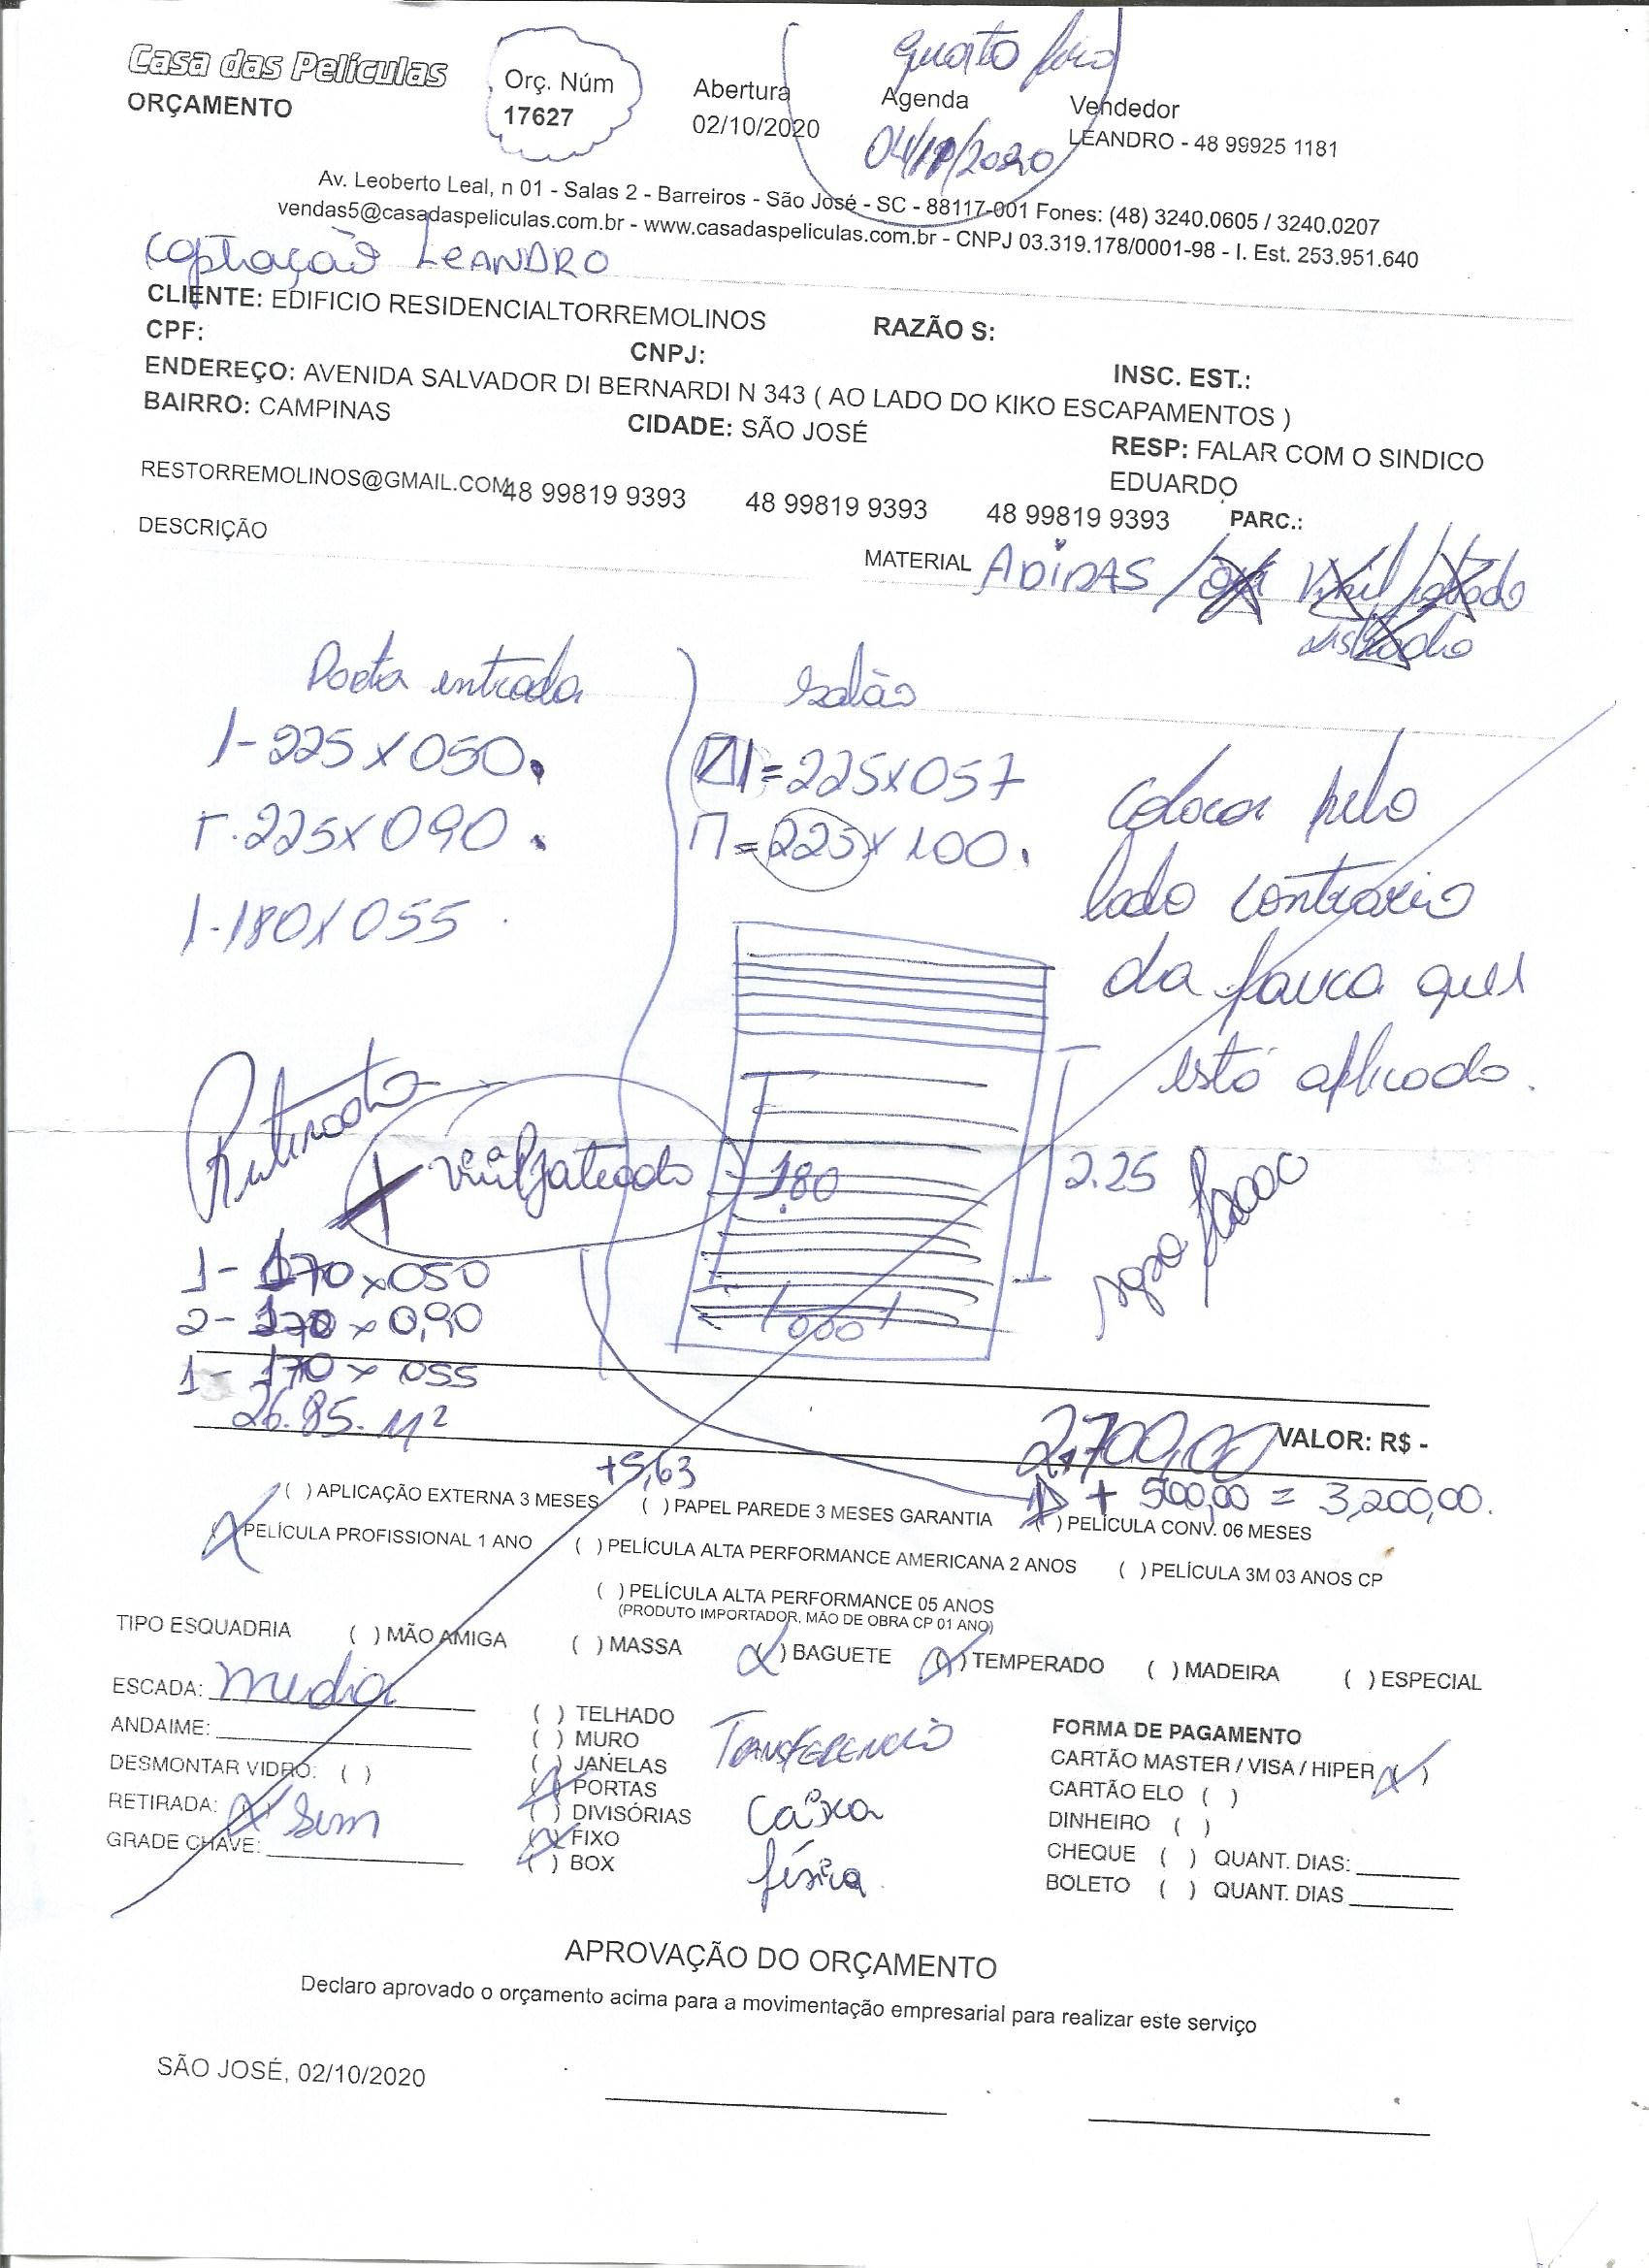 Casa das Películas
ORÇAMENTO
Orç. Núm
17627
Abertura
02/10/2020
quarta feira
Agenda
04/11/2020
Vendedor
LEANDRO - 48 99925 1181
Av. Leoberto Leal, n 01 - Salas 2 - Barreiros - São José - SC - 88117-001 Fones: (48) 3240.0605 / 3240.0207
vendas5@casadaspeliculas.com.br - www.casadaspeliculas.com.br - CNPJ 03.319.178/0001-98 - I. Est. 253.951.640
Captação LEANDRO
CLIENTE: EDIFICIO RESIDENCIALTORREMOLINOS RAZÃO S:
CPF: CNPJ: INSC. EST.:
ENDEREÇO: AVENIDA SALVADOR DI BERNARDI N 343 ( AO LADO DO KIKO ESCAPAMENTOS )
BAIRRO: CAMPINAS CIDADE: SÃO JOSÉ RESP: FALAR COM O SINDICO
EDUARDO
RESTORREMOLINOS@GMAIL.COM 48 99819 9393 48 99819 9393 48 99819 9393 PARC.:
DESCRIÇÃO
MATERIAL ADIDAS / Vinil jateado
listrado
Porta entrada
1-225 x 050.
225 x 090.
1-180 x 055
Salão
=225x057
=225x100.
Colocar pelo
lado contrario
da faixa que
está aplicado.
Retirado
vinil Jateado
180
2.25
1- 170 x 050
2- 170 x 0,90
1- 170 x 055
26.85. M²
2.700,00 VALOR: R$ -
+5,63
+ 500,00 = 3,200,00.
( ) APLICAÇÃO EXTERNA 3 MESES ( ) PAPEL PAREDE 3 MESES GARANTIA ( ) PELÍCULA CONV. 06 MESES
PELÍCULA PROFISSIONAL 1 ANO ( ) PELÍCULA ALTA PERFORMANCE AMERICANA 2 ANOS ( ) PELÍCULA 3M 03 ANOS CP
( ) PELÍCULA ALTA PERFORMANCE 05 ANOS
(PRODUTO IMPORTADOR, MÃO DE OBRA CP 01 ANO)
TIPO ESQUADRIA ( ) MÃO AMIGA ( ) MASSA (X) BAGUETE (X) TEMPERADO ( ) MADEIRA ( ) ESPECIAL
ESCADA: media
ANDAIME:
DESMONTAR VIDRO: ( )
RETIRADA: (X) Sim
GRADE CHAVE:
( ) TELHADO
( ) MURO
( ) JANELAS
(X) PORTAS
( ) DIVISÓRIAS
(X) FIXO
( ) BOX
TRANSFERENCIA
Caixa
física
FORMA DE PAGAMENTO
CARTÃO MASTER / VISA / HIPER (X)
CARTÃO ELO ( )
DINHEIRO ( )
CHEQUE ( ) QUANT. DIAS:
BOLETO ( ) QUANT. DIAS
APROVAÇÃO DO ORÇAMENTO
Declaro aprovado o orçamento acima para a movimentação empresarial para realizar este serviço
SÃO JOSÉ, 02/10/2020